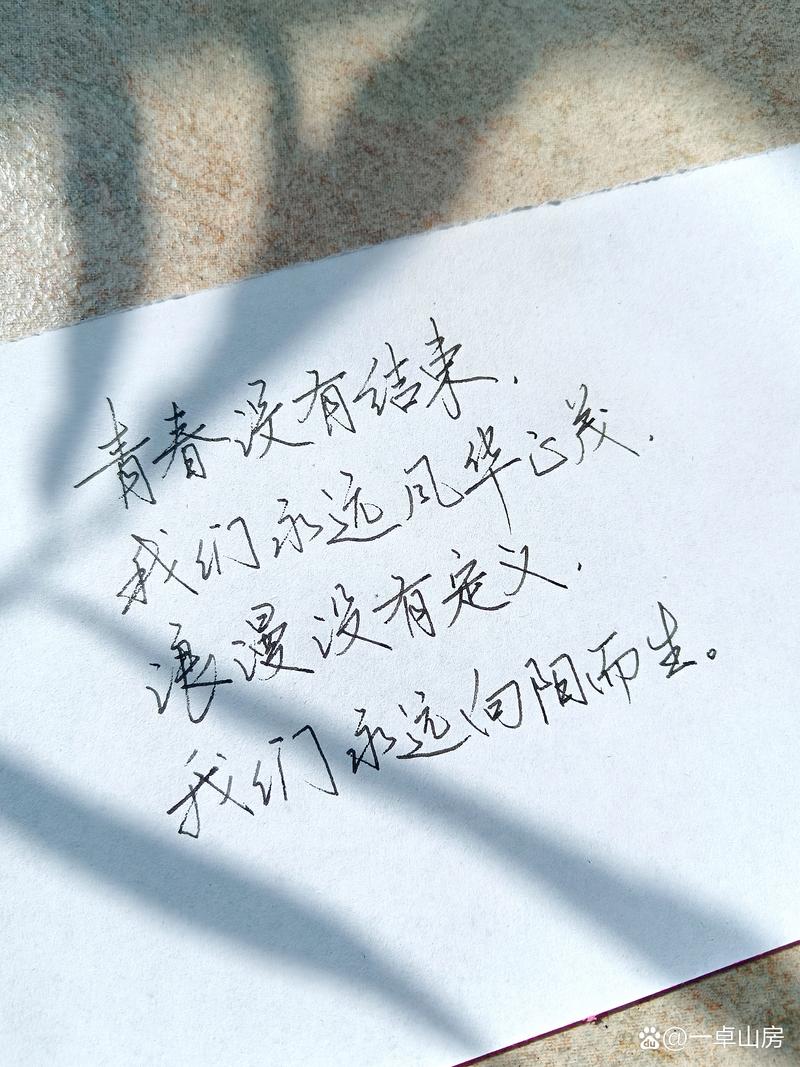 青春没有结束.
我们永远风华正茂.
浪漫没有定义.
我们永远向阳而生。
@一卓山房